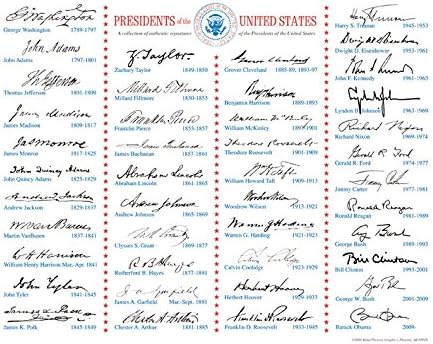 PRESIDENTS of the UNITED STATES
A collection of authentic signatures of the Presidents of the United States
G Washington
George Washington 1789-1797
John Adams
John Adams 1797-1801
Th Jefferson
Thomas Jefferson 1801-1809
James Madison
James Madison 1809-1817
Jas Monroe
James Monroe 1817-1825
John Quincy Adams
John Quincy Adams 1825-1829
Andrew Jackson
Andrew Jackson 1829-1837
M Van Buren
Martin VanBuren 1837-1841
W H Harrison
William Henry Harrison Mar.-Apr. 1841
John Tyler
John Tyler 1841-1845
James K. Polk
James K. Polk 1845-1849
Z. Taylor.
Zachary Taylor 1849-1850
Millard Fillmore
Millard Fillmore 1850-1853
Franklin Pierce
Franklin Pierce 1853-1857
James Buchanan
James Buchanan 1857-1861
Abraham Lincoln
Abraham Lincoln 1861-1865
Andrew Johnson
Andrew Johnson 1865-1869
U.S. Grant
Ulysses S. Grant 1869-1877
R B Hayes
Rutherford B. Hayes 1877-1881
J A Garfield
James A. Garfield Mar.-Sept. 1881
Chester A Arthur
Chester A. Arthur 1881-1885
Grover Cleveland
Grover Cleveland 1885-89, 1893-97
Benj Harrison
Benjamin Harrison 1889-1893
William McKinley
William McKinley 1897-1901
Theodore Roosevelt
Theodore Roosevelt 1901-1909
Wm H Taft
William Howard Taft 1909-1913
Woodrow Wilson
Woodrow Wilson 1913-1921
Warren G Harding
Warren G. Harding 1921-1923
Calvin Coolidge
Calvin Coolidge 1923-1929
Herbert Hoover
Herbert Hoover 1929-1933
Franklin D Roosevelt
Franklin D. Roosevelt 1933-1945
Harry S. Truman
Harry S. Truman 1945-1953
Dwight D Eisenhower
Dwight D. Eisenhower 1953-1961
John F. Kennedy 1961-1963
Lyndon B. Johnson 1963-1969
Richard Nixon
Richard Nixon 1969-1974
Gerald R. Ford
Gerald R. Ford 1974-1977
Jimmy Carter
Jimmy Carter 1977-1981
Ronald Reagan
Ronald Reagan 1981-1989
G Bush
George Bush 1989-1993
Bill Clinton
Bill Clinton 1993-2001
George W. Bush 2001-2009
Barack Obama 2009-